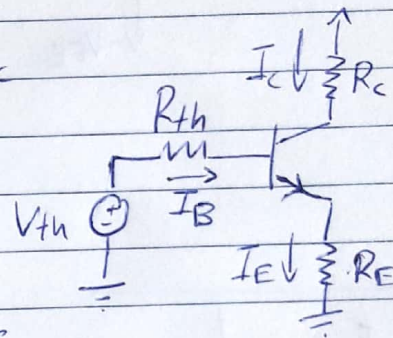 Ic Rc
Rth
IB
Vth
IE RE